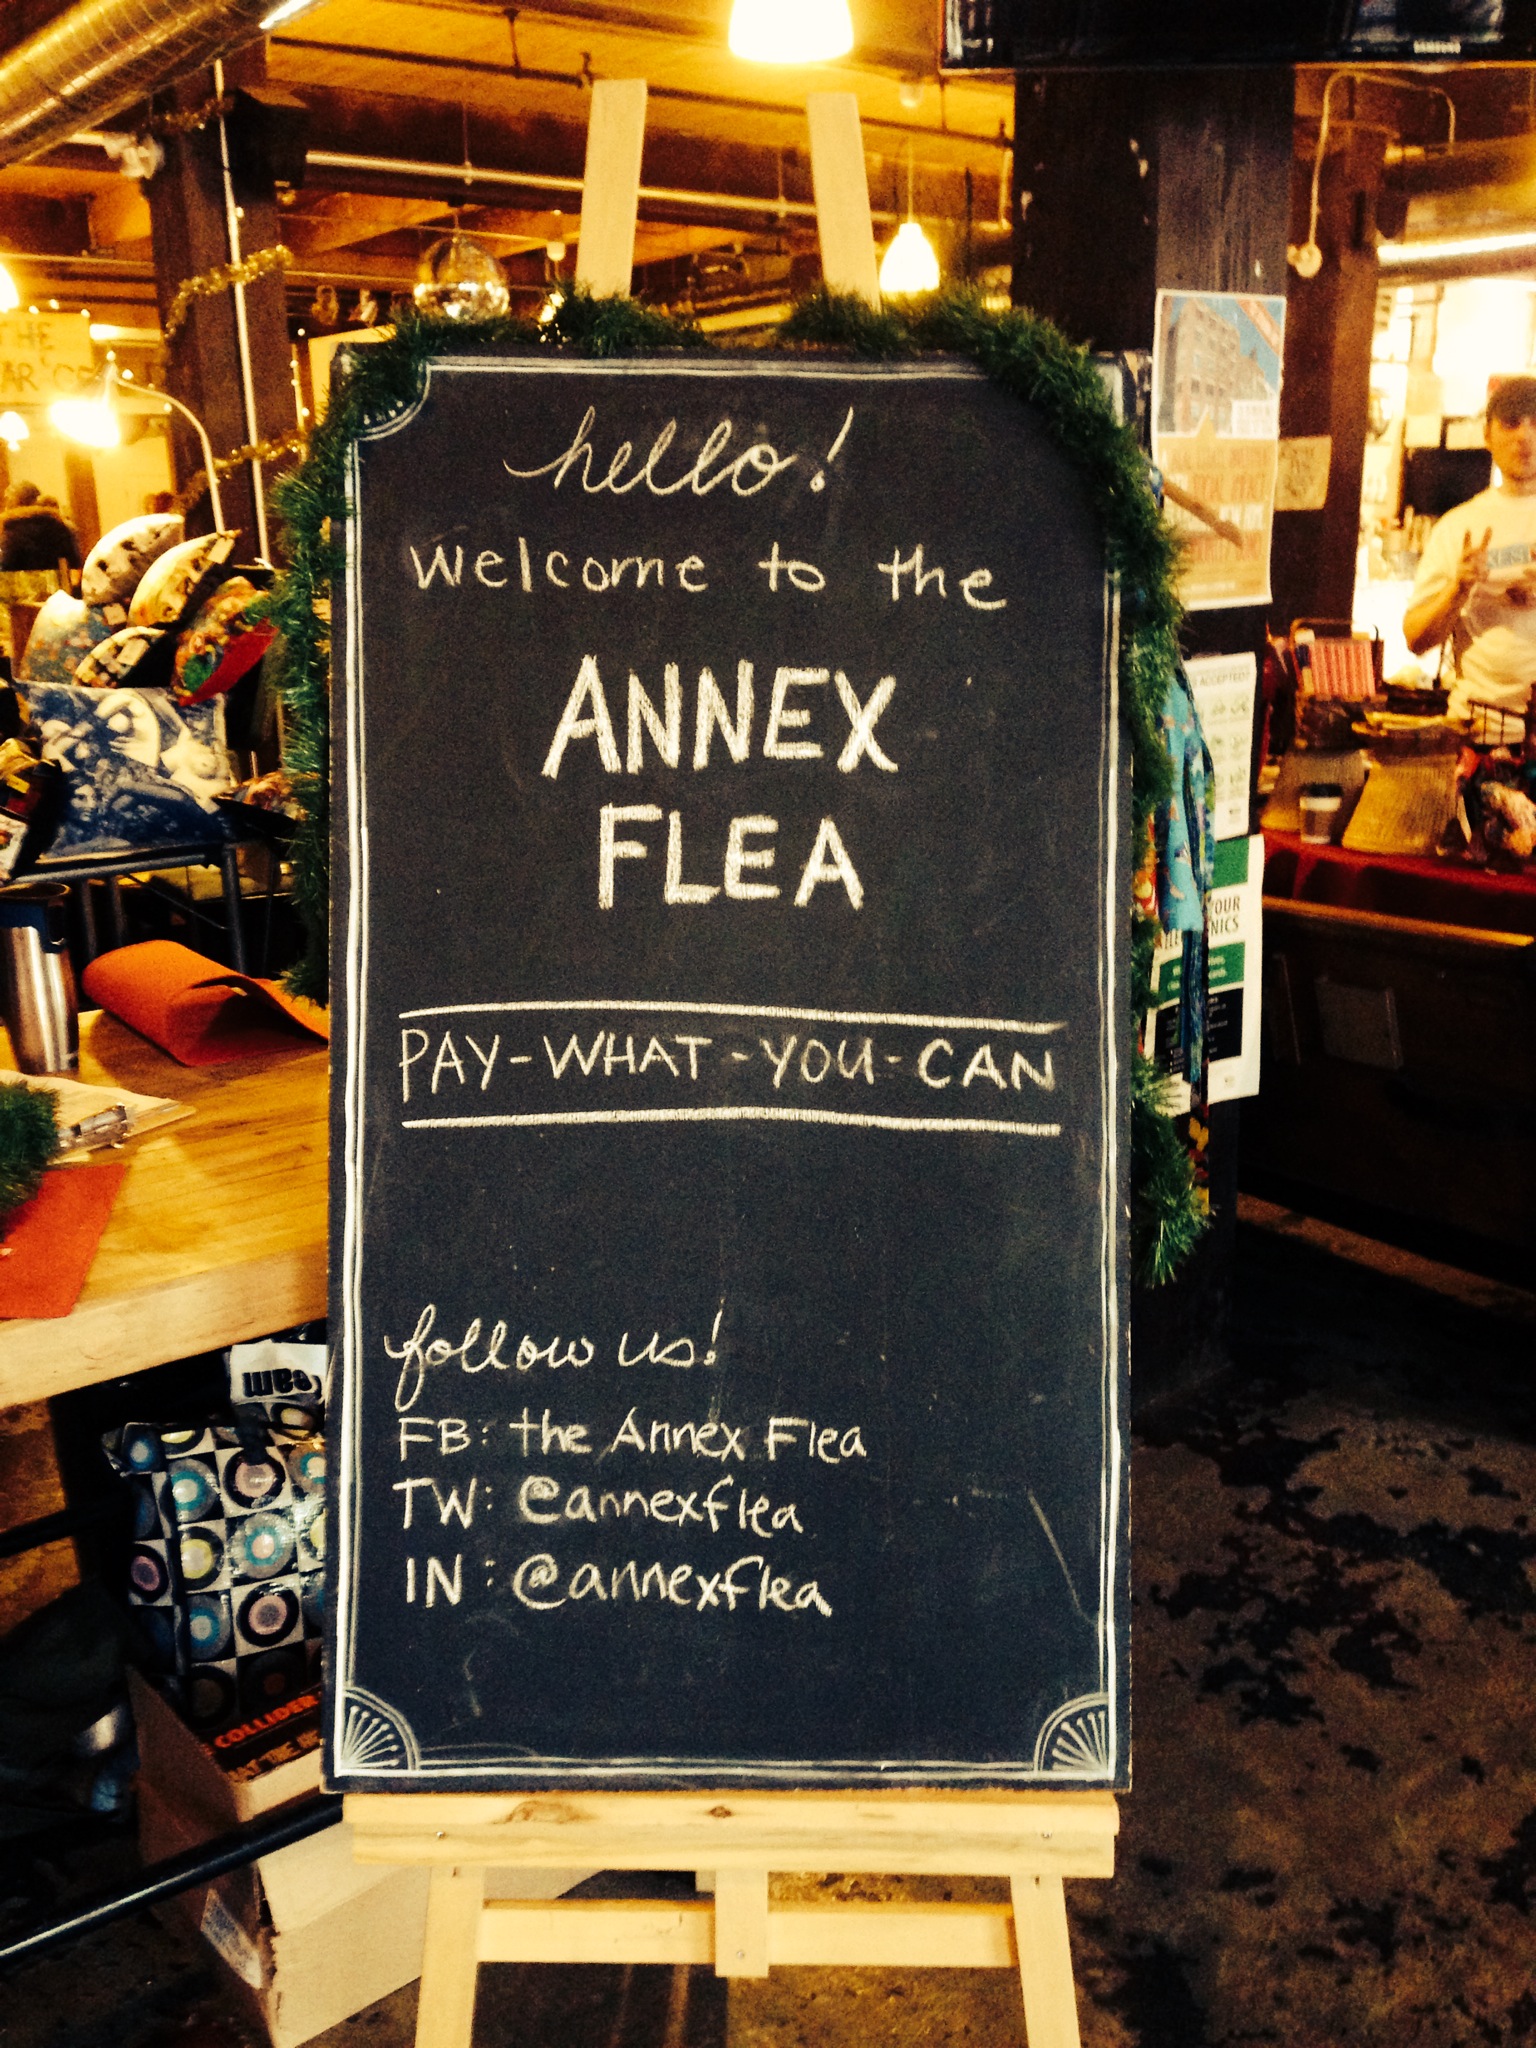 hello!
welcome to the
ANNEX
FLEA
PAY-WHAT-YOU-CAN
follow us!
FB: the Annex Flea
TW: @annexflea
IN: @annexflea
SAMSUNG
THE
ACCEPTED?
YOUR
COLLIDER